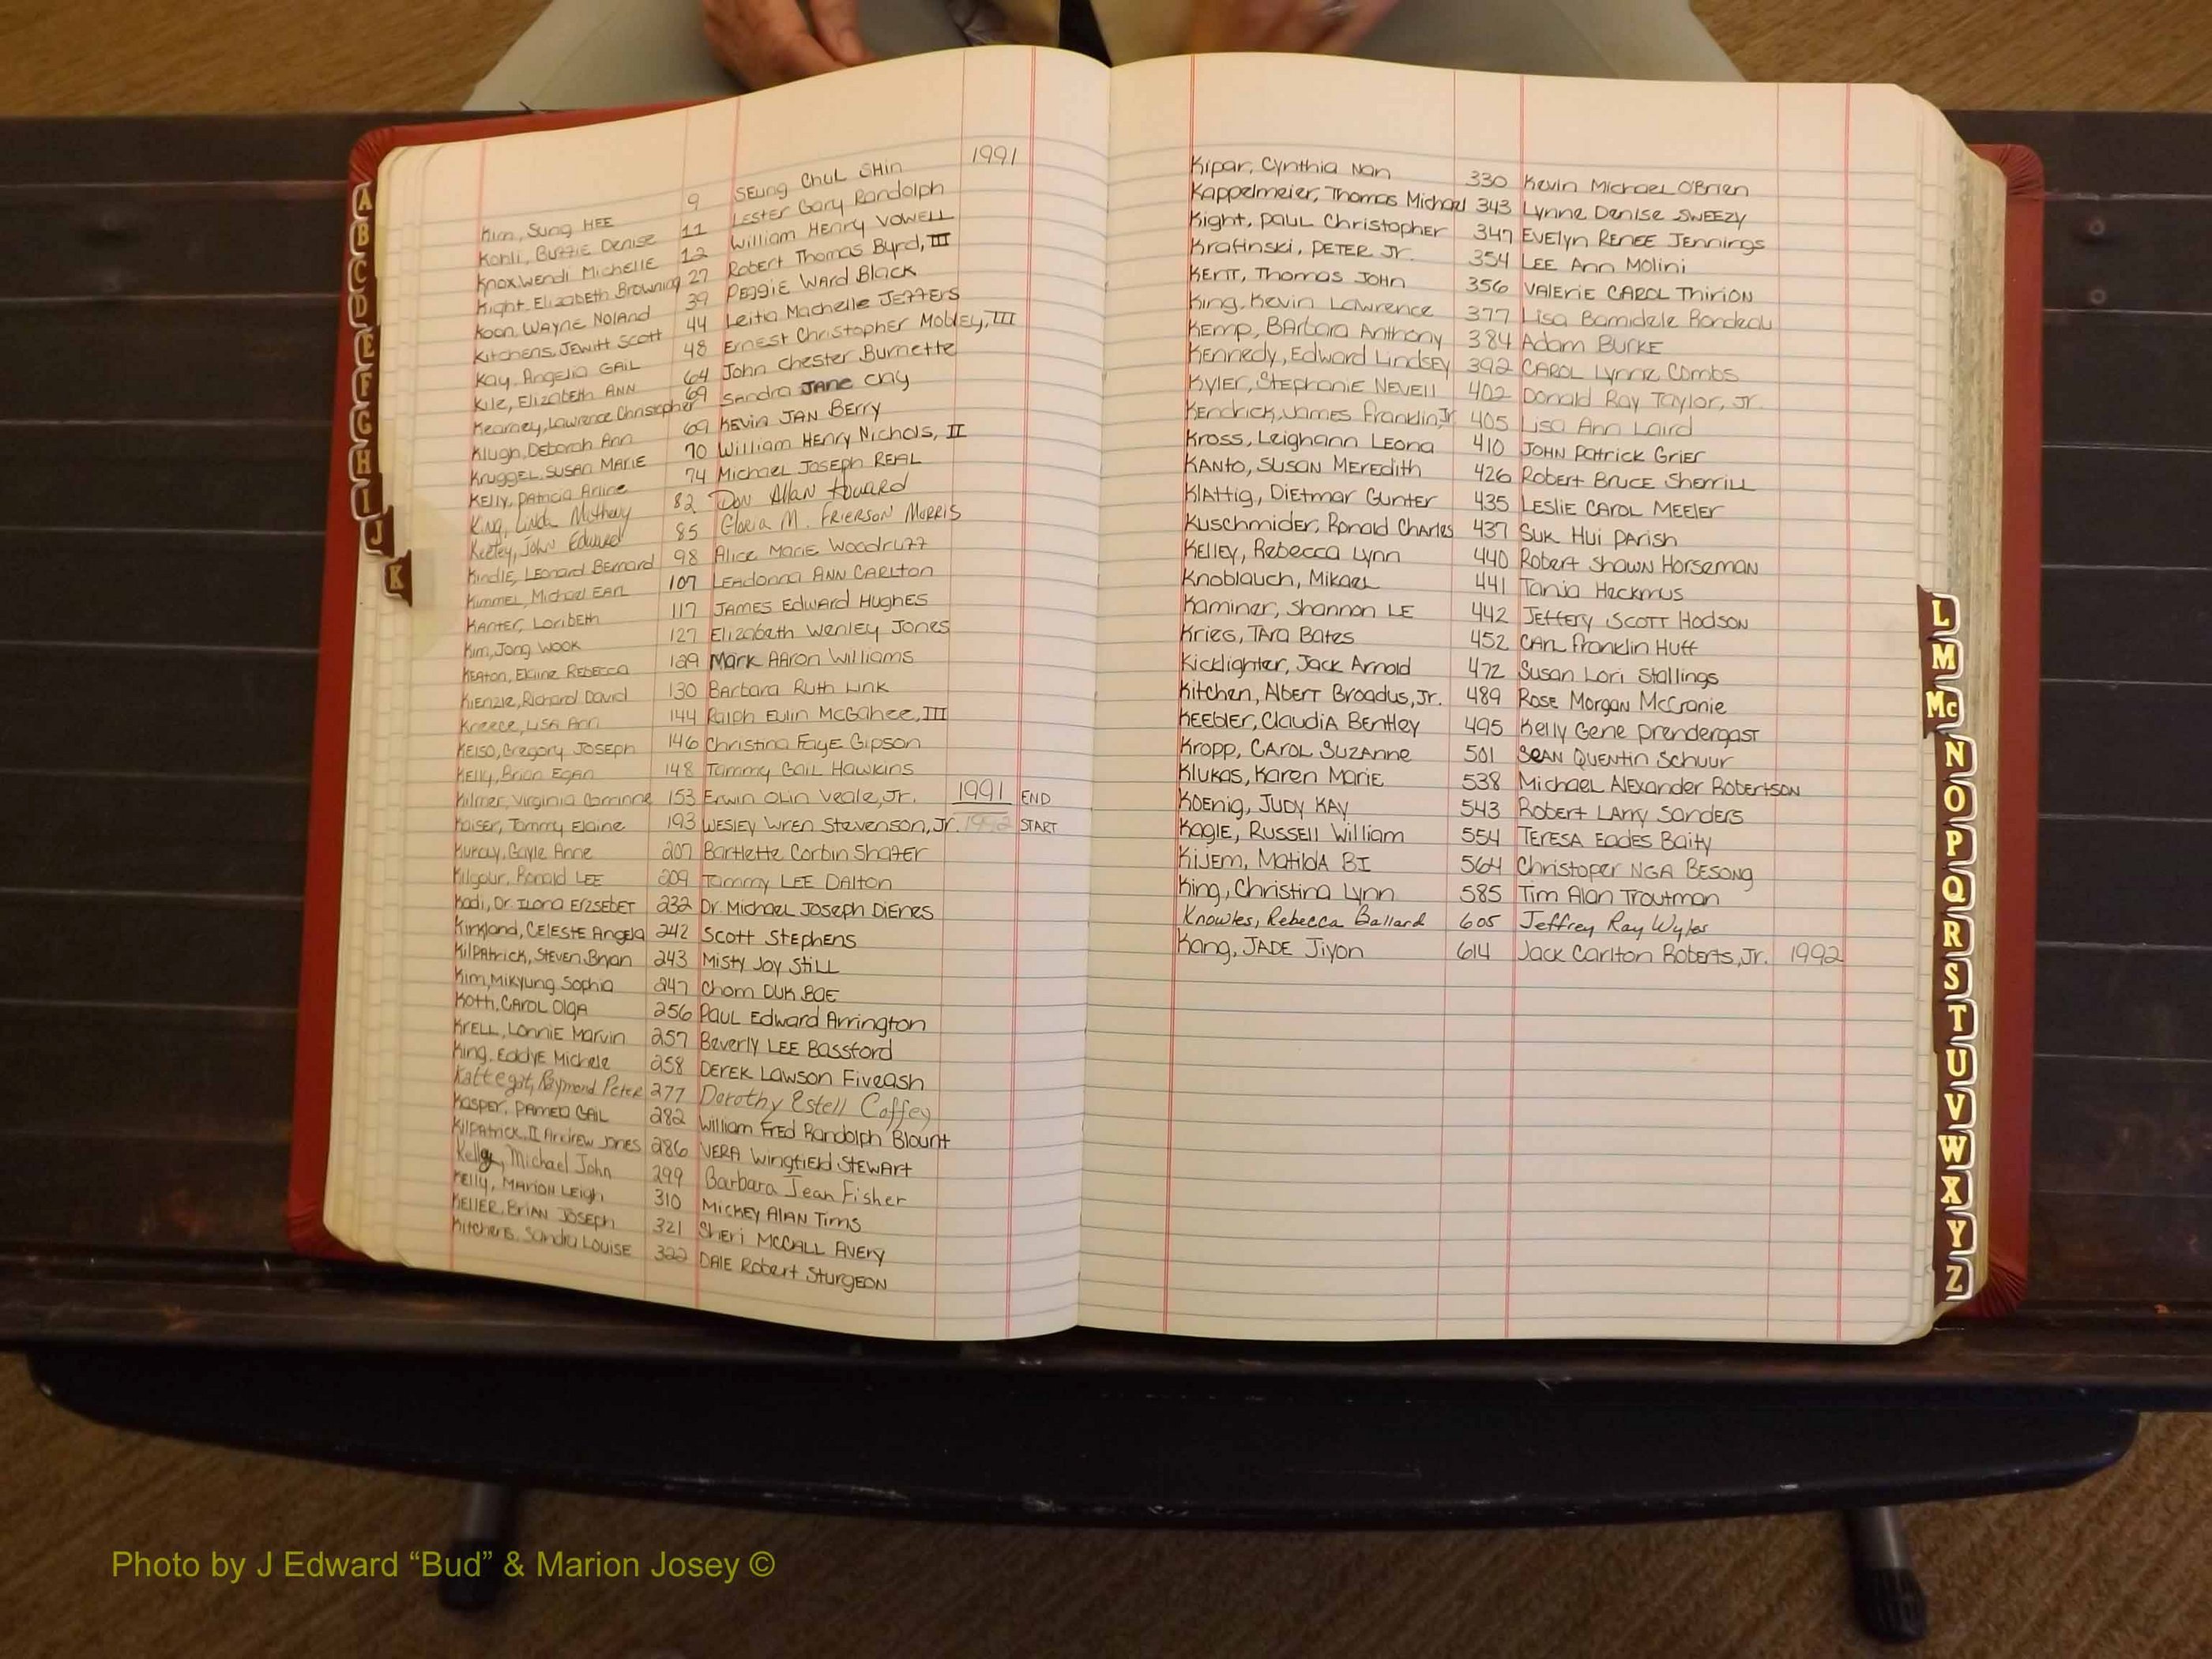 1991
Kim, Sung HEE 9 SEung Chul SHin
Kohli, Buzzie Denise 11 Lester Gary Randolph
Knox Wendi Michelle 12 William Henry Vowell
Kight, Elizabeth Browning 27 Robert Thomas Byrd, III
Koon, Wayne Noland 39 Peggie Ward Black
Kitchens, Jewitt Scott 44 Leitia Machelle Jeffers
Kay, Angelia Gail 48 Ernest Christopher Mobley, III
Kile, Elizabeth Ann 64 John Chester Burnette
Kearney, Lawrence Christopher 69 Sandra Jane
Klugh, Deborah Ann 69 Kevin Jan Berry
Kruggel, Susan Marie 70 William Henry Nichols, II
Kelly, Patricia Arline 74 Michael Joseph Real
King, Linda 82 Don Allan Howard
John Edward 85 Gloria M. Frierson Morris
Kindle, Leonard Bernard 98 Alice Marie Woodruff
Kimmel, Michael Earl 107 Leadonna Ann Carlton
Kanter, Loribeth 117 James Edward Hughes
Kim, Jong Wook 127 Elizabeth Wenley Jones
Keaton, Elaine Rebecca 129 Mark Aaron Williams
Kienzie, Richard David 130 Barbara Ruth Link
Kneece, Lisa Ann 144 Ralph Eulin McGahee, III
Kelso, Gregory Joseph 146 Christina Faye Gipson
Kelly, Brian Egan 148 Tammy Gail Hawkins
Kilmer, Virginia Corrinne 153 Erwin Olin Veale, Jr. 1991 END
Kaiser, Tammy Elaine 193 Wesley Wren Stevenson, Jr. 1992 START
Kuray, Gayle Anne 207 Bartlette Corbin Shafer
Kilgour, Ronald Lee 209 Tammy Lee Dalton
Kadi, Dr. Ilona Erzsebet 232 Dr. Michael Joseph Dienes
Kirkland, Celeste Angela 242 Scott Stephens
Kilpatrick, Steven Bryan 243 Misty Joy Still
Kim, Mikyung Sophia 247 Chom Duk Bae
Koth, Carol Olga 256 Paul Edward Arrington
Krell, Lonnie Marvin 257 Beverly Lee Bassford
King, Eddye Michele 258 Derek Lawson Fiveash
Kattegat, Raymond Peter 277 Dorothy Estell Coffey
Kasper, Pamela Gail 282 William Fred Randolph Blount
Kilpatrick, II Andrew Jones 286 Vera Wingfield Stewart
Kelly, Michael John 299 Barbara Jean Fisher
Kelly, Marion Leigh 310 Mickey Alan Tims
Keller, Brian Joseph 321 Sheri McCall Avery
Kitchens, Sandra Louise 322 Dale Robert Sturgeon
Kipar, Cynthia Nan 330 Kevin Michael O'Brien
Kappelmeier, Thomas Michael 343 Lynne Denise Sweezy
Kight, Paul Christopher 347 Evelyn Renee Jennings
Krafinski, Peter Jr. 354 Lee Ann Molini
Kent, Thomas John 356 Valerie Carol Thirion
King, Kevin Lawrence 377 Lisa Bamidele Rondeau
Kemp, Barbara Anthony 384 Adam Burke
Kennedy, Edward Lindsey 392 Carol Lynne Combs
Kyler, Stephanie Nevell 402 Donald Ray Taylor, Jr.
Kendrick, James Franklin, Jr 405 Lisa Ann Laird
Kross, Leighann Leona 410 John Patrick Grier
Kanto, Susan Meredith 426 Robert Bruce Sherrill
Klattig, Dietmar Gunter 435 Leslie Carol Meeler
Kuschmider, Ronald Charles 437 Suk Hui Parish
Kelley, Rebecca Lynn 440 Robert Shawn Horseman
Knoblauch, Mikael 441 Tanja Heckmus
Kaminer, Shannon Le 442 Jeffery Scott Hodson
Kries, Tara Bates 452 Carl Franklin Huff
Kicklighter, Jack Arnold 472 Susan Lori Stallings
Kitchen, Albert Broadus, Jr. 489 Rose Morgan McCranie
Keebler, Claudia Bentley 495 Kelly Gene Prendergast
Kropp, Carol Suzanne 501 Sean Quentin Schuur
Klukas, Karen Marie 538 Michael Alexander Robertson
Koenig, Judy Kay 543 Robert Larry Sanders
Kagle, Russell William 554 Teresa Eades Baity
Kijem, Matilda Bi 564 Christoper Nga Besong
King, Christina Lynn 585 Tim Alan Troutman
Knowles, Rebecca Ballard 605 Jeffrey Ray Wyles
Kang, Jade Jiyon 614 Jack Carlton Roberts, Jr. 1992
A
B
C
D
E
F
G
H
I
J
K
L
M
Mc
N
O
P
Q
R
S
T
U
V
W
X
Y
Z
Photo by J Edward “Bud” & Marion Josey ©